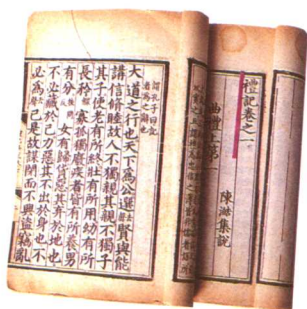 禮記卷之一
曲禮上第一
陳澔集說
大道之行也天下為公選賢與能
講信修睦故人不獨親其親不獨子
其子使老有所終壯有所用幼有所
長矜寡孤獨廢疾者皆有所養男
有分女有歸貨惡其棄於地也
不必藏於己力惡其不出於身也不
必為己是故謀閉而不興盜竊亂